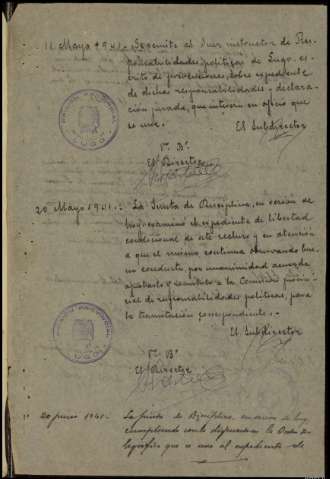 11 Mayo 1941.- Se remite al Juez instructor de Res-
ponsabilidades políticas de Lugo, es-
crito de providencias, sobre expediente
de dichas responsabilidades y declara-
ración jurada, que interesa en oficio que
se une.
El Subdirector
Vº Bº
El Director
PRISION PROVINCIAL
LUGO
20 Mayo 1941.- La Junta de Disciplina, en sesión de
hoy, examinó el expediente de libertad
condicional de este recluso y en atención
a que el mismo continua observando bue-
na conducta, por unanimidad acuerda
aprobarlo y remitirlo a la Comisión provin-
cial de responsabilidades políticas, para
la tramitación correspondiente.-
El Subdirector
Vº Bº
El Director
PRISION PROVINCIAL
LUGO
20 junio 1941- La junta de Disciplina, en sesión de hoy
cumpliendo con lo dispuesto en la Orden te-
legráfica que se une al expediente de